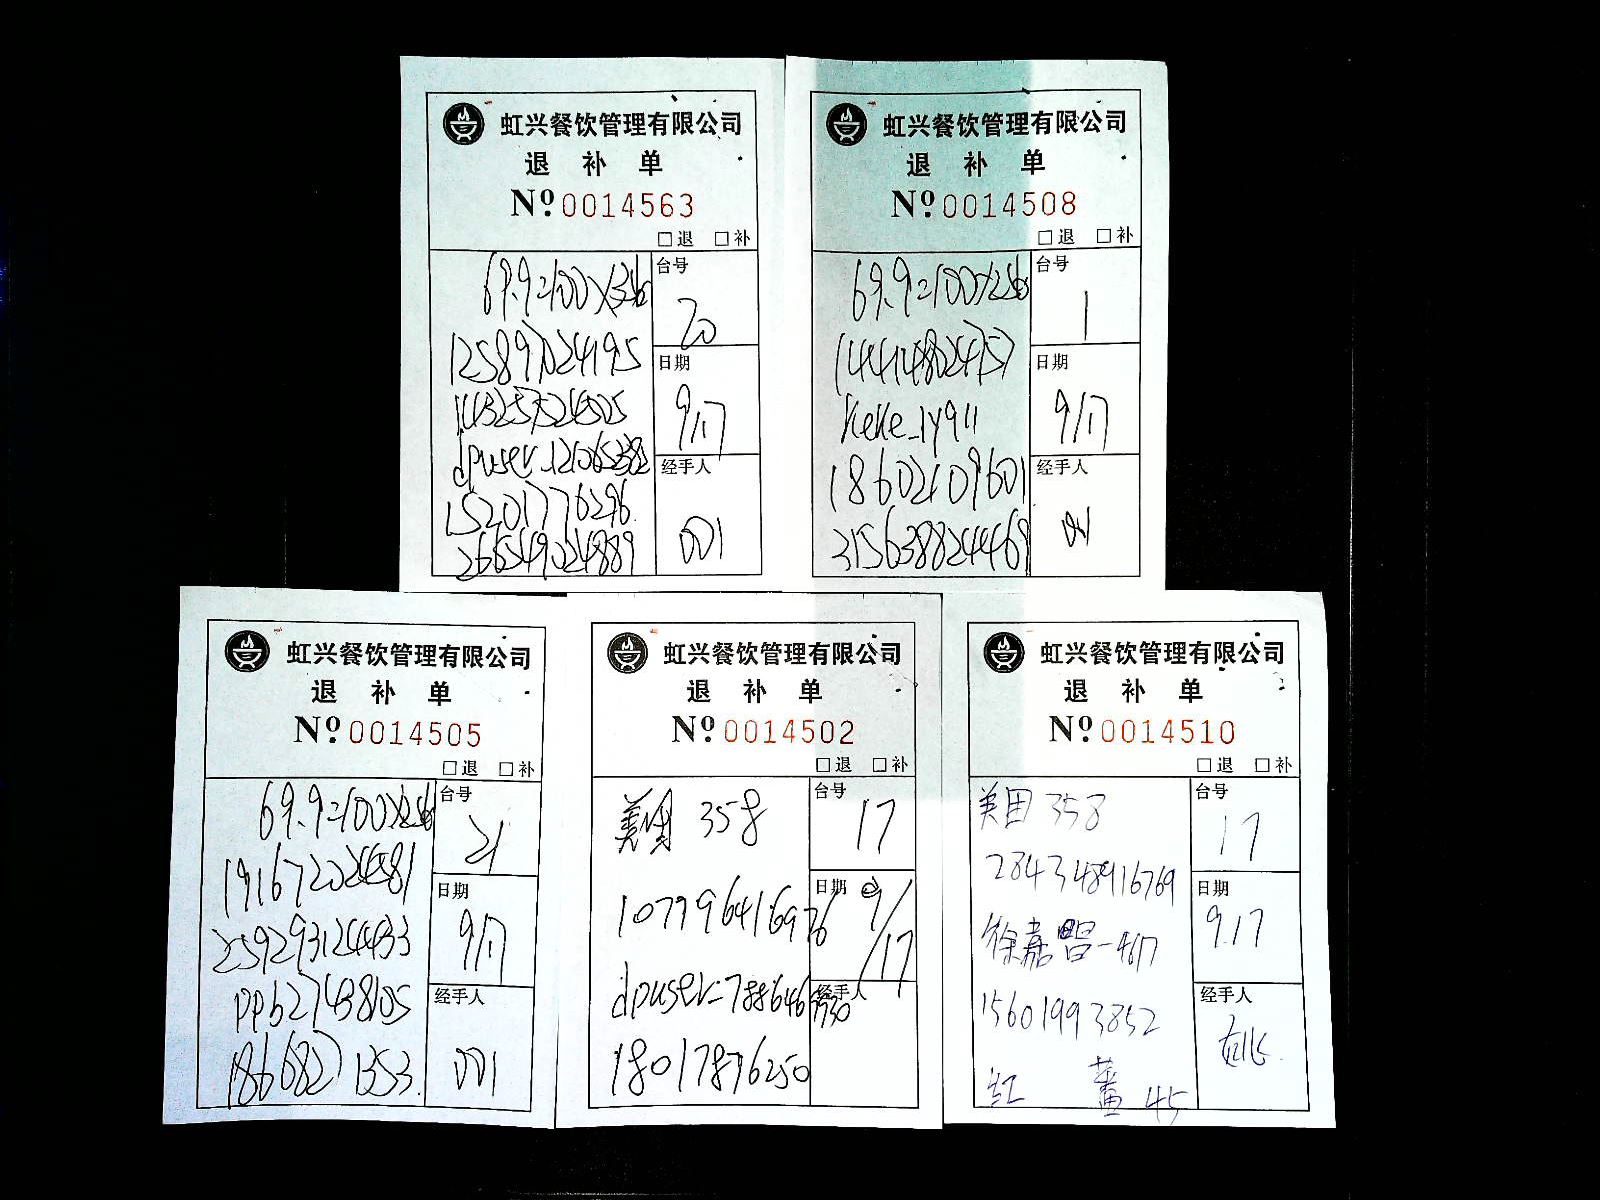 虹兴餐饮管理有限公司
退 补 单
№0014563
□退 □补
台号
20
125897024195
日期
9/17
dpuser_121065382
经手人
15201776296
001
266549024889
虹兴餐饮管理有限公司
退 补 单
№0014508
□退 □补
69.9=100×2份
台号
1
144148024757
日期
9/17
keke_1y911
18602109601
经手人
315638824469
虹兴餐饮管理有限公司
退 补 单
№0014505
□退 □补
69.9=100×2份
台号
21
191672024581
日期
9/17
259293124433
ppb27438105
经手人
18668271353
001
虹兴餐饮管理有限公司
退 补 单
№0014502
□退 □补
美团 358
台号
17
107796416976
日期
9/17
经手人
18017876250
虹兴餐饮管理有限公司
退 补 单
№0014510
□退 □补
美团 358
台号
17
284348916769
日期
9.17
徐嘉
15601993852
经手人
红 45